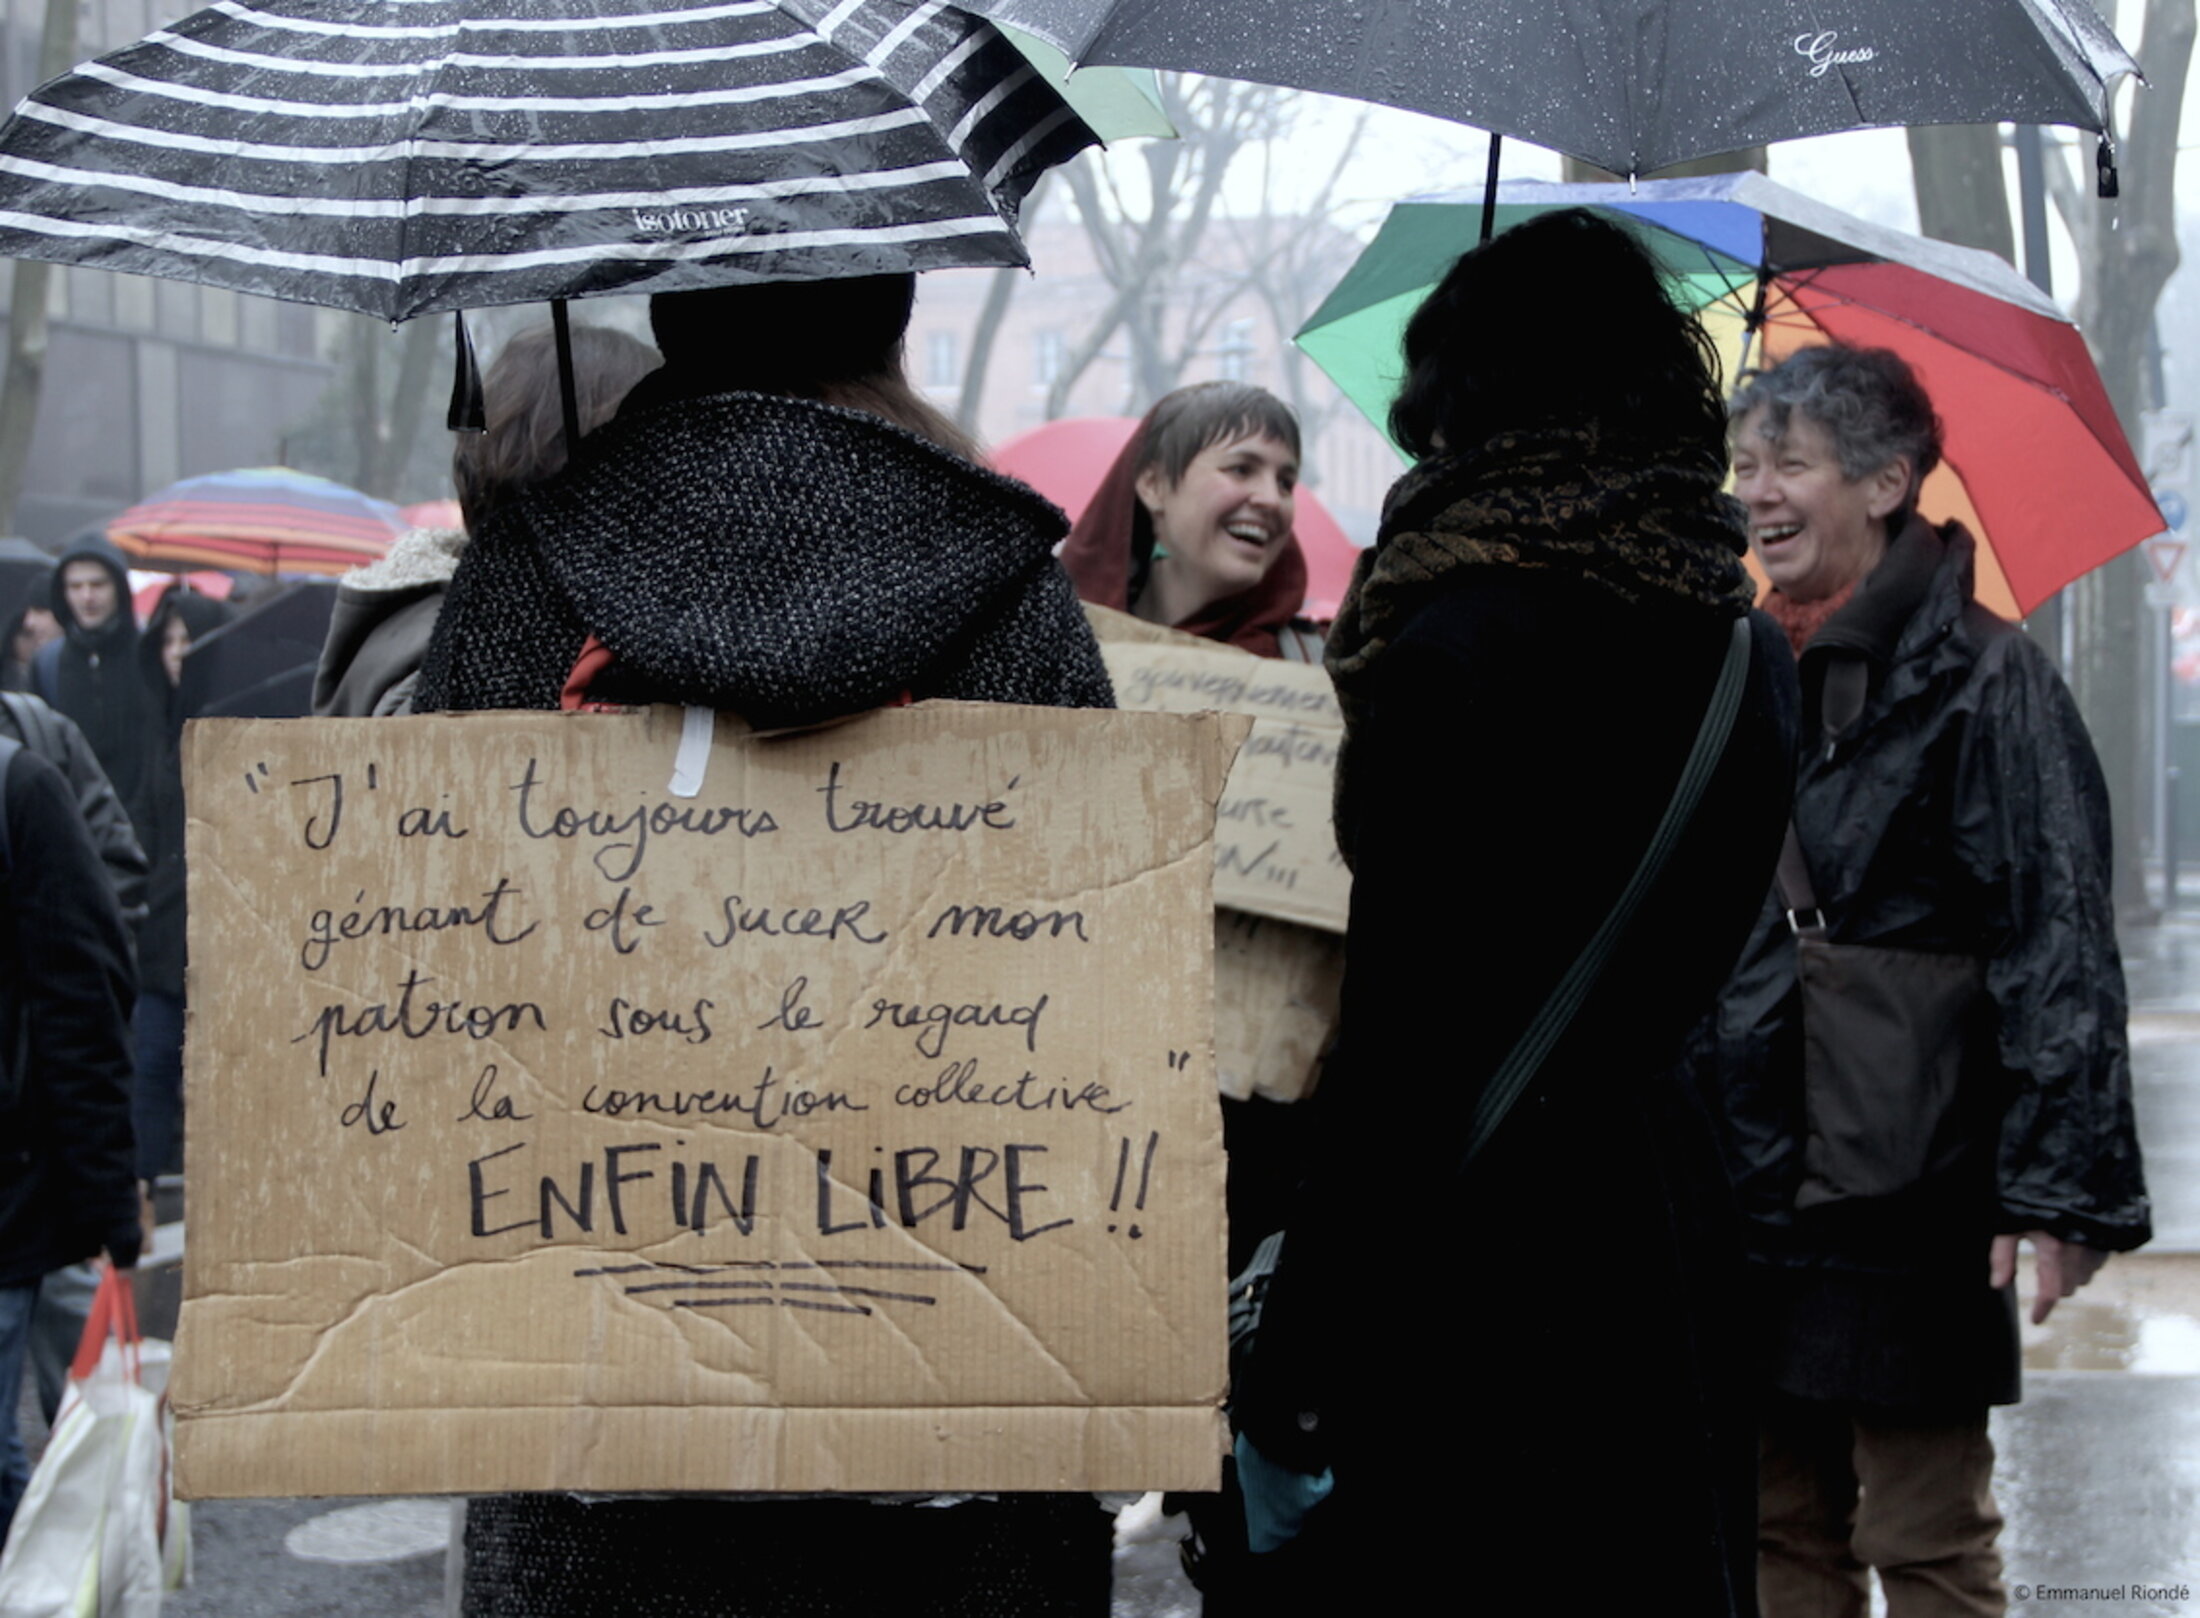 Guess
isotoner
"J'ai toujours trouvé
gênant de sucer mon
patron sous le regard
de la convention collective"
ENFIN LIBRE !!
© Emmanuel Riondé